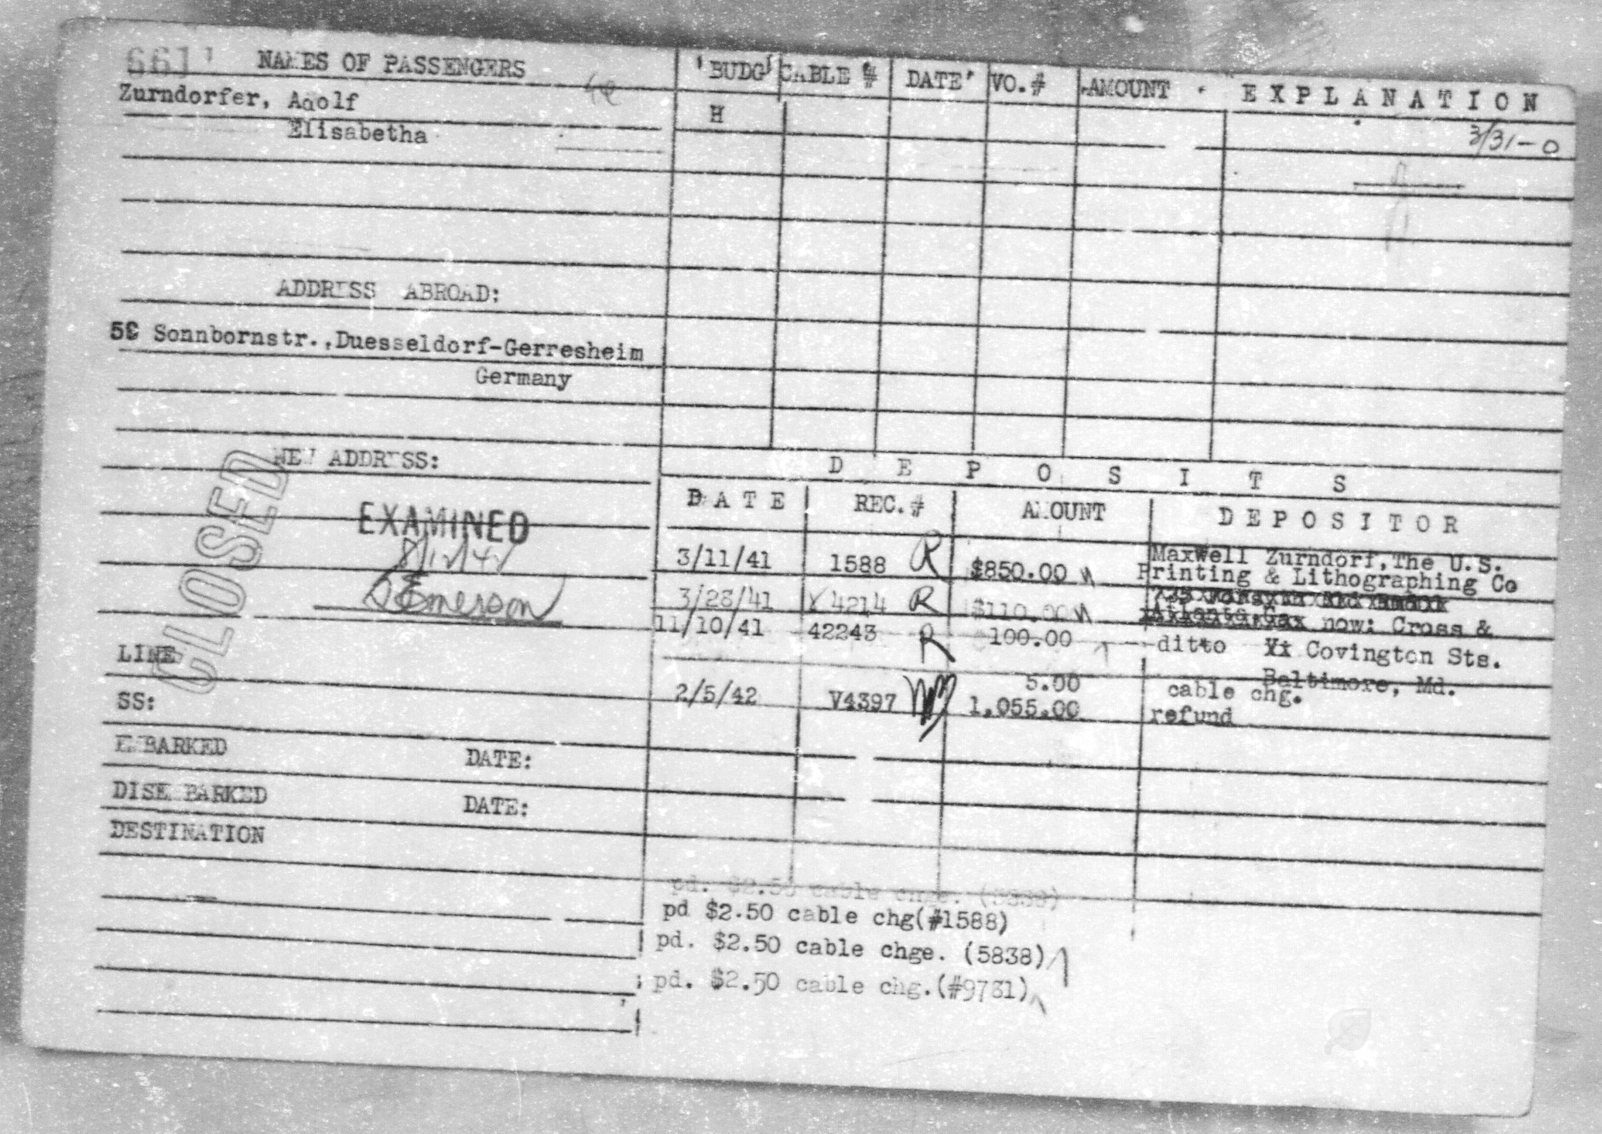 NAMES OF PASSENGERS
Zurndorfer, Adolf
Elisabetha
ADDRESS ABROAD:
Sonnbornstr., Duesseldorf-Gerresheim
Germany
NEW ADDRESS:
CLOSED
EXAMINED
8/12/42
Emerson
LINE
SS:
EMBARKED DATE:
DISEMBARKED DATE:
DESTINATION
BUDG CABLE # DATE VO.# AMOUNT EXPLANATION
H
3/31-0
DEPOSITS
DATE REC.# AMOUNT DEPOSITOR
3/11/41 1588 R $850.00 Maxwell Zurndorf,The U.S.
Printing & Lithographing Co
3/28/41 4214 R $110.00
now: Cross &
11/10/41 42243 R 100.00 ditto Covington Sts.
Baltimore, Md.
5.00 cable chg.
2/5/42 V4397 1,055.00 refund
pd. $2.50 cable chge.
pd $2.50 cable chg(#1588)
pd. $2.50 cable chge. (5838)
pd. $2.50 cable chg.(#9781)